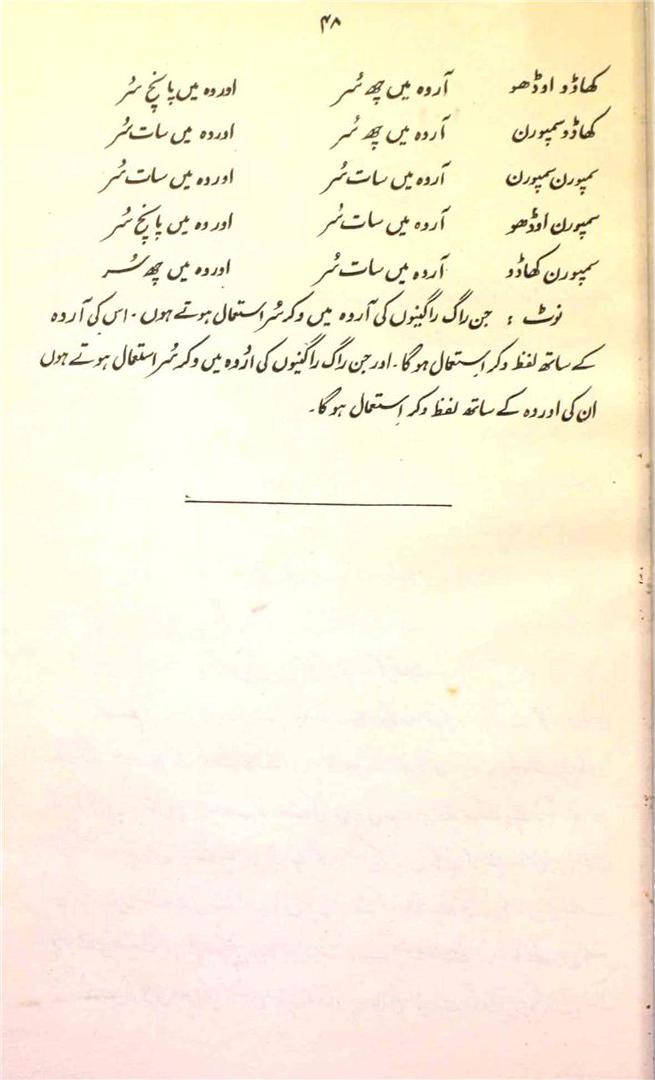 ۴۸
کھاڈو اوڈھو آروہ میں چھ سُر اوروہ میں پانچ سُر
کھاڈو سمپورن آروہ میں چھ سُر اوروہ میں سات سُر
سمپورن سمپورن آروہ میں سات سُر اوروہ میں سات سُر
سمپورن اوڈھو آروہ میں سات سُر اوروہ میں پانچ سُر
سمپورن کھاڈو آروہ میں سات سُر اوروہ میں چھ سُر
نوٹ : جن راگ راگنیوں کی آروہ میں وکر سُر استعمال ہوتے ہوں ۔ اس کی آروہ
کے ساتھ لفظ وکر اِستعمال ہو گا ۔ اور جن راگ راگنیوں کی ارُوہ میں وکر سُر استعمال ہوتے ہوں
ان کی اوروہ کے ساتھ لفظ وکر اِستعمال ہو گا ۔